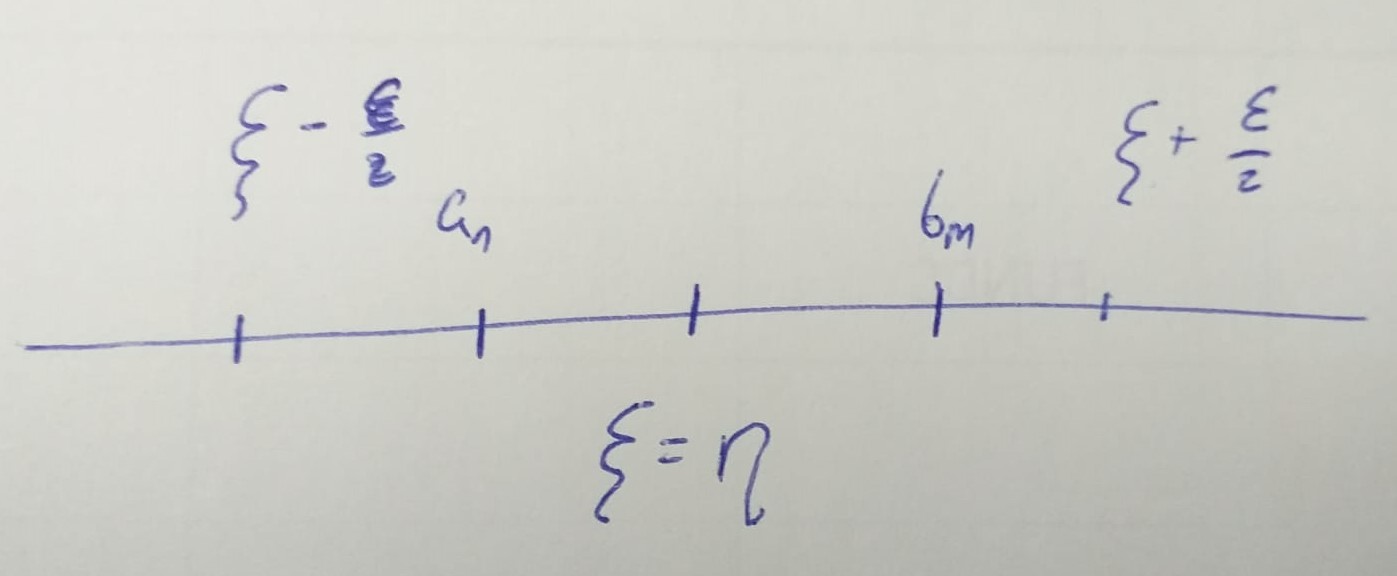 ξ - ε/2 a_n b_m ξ + ε/2
ξ = η